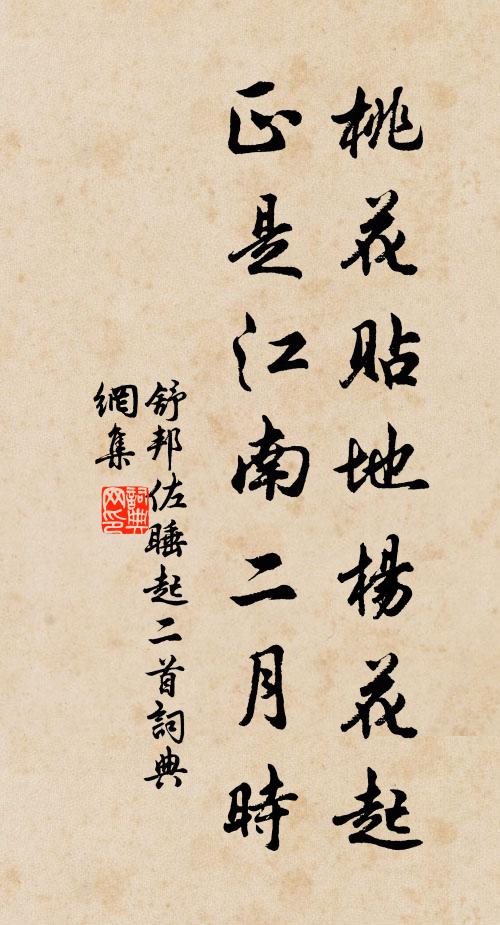 桃花貼地楊花起
正是江南二月時
舒邦佐睡起二首詞典
網集
詞典網印